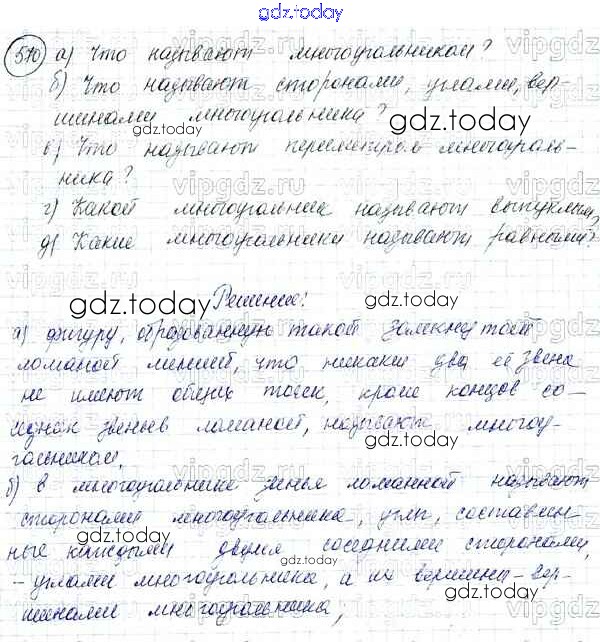 gdz.today
570 а) Что называют многоугольником?
б) Что называют сторонами, углами, вер-
шинами многоугольника?
gdz.today gdz.today
в) Что называют периметром многоуголь-
ника?
г) Какой многоугольник называют выпуклым?
д) Какие многоугольники называют равными?
gdz.today Решение: gdz.today
а) фигуру, образованную такой замкнутой
ломаной линией, что никакие два её звена
не имеют общих точек, кроме концов со-
седних звеньев ломаной, называют многоу-
гольником.
gdz.today
б) в многоугольнике звенья ломанной называют
сторонами многоугольника, углы, составлен-
ные каждыми двумя соседними сторонами,
- углами многоугольника, а их вершины - вер-
шинами многоугольника,
gdz.today gdz.today
vipgdz.ru